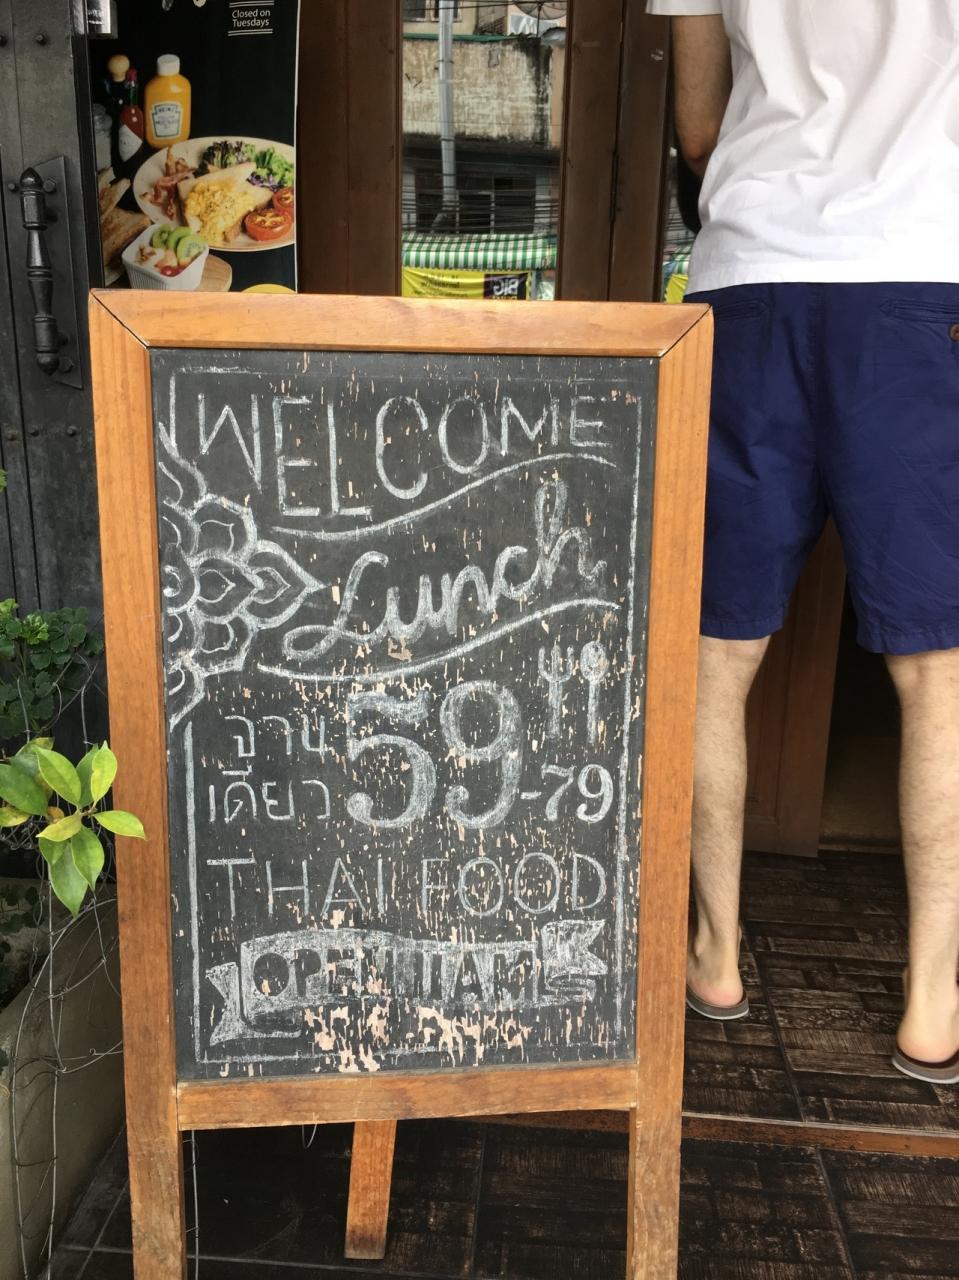 Closed on
Tuesdays
HEINZ
WELCOME
Lunch
จาน
เดียว
59
-79
THAI FOOD
OPEN 11AM
BIG